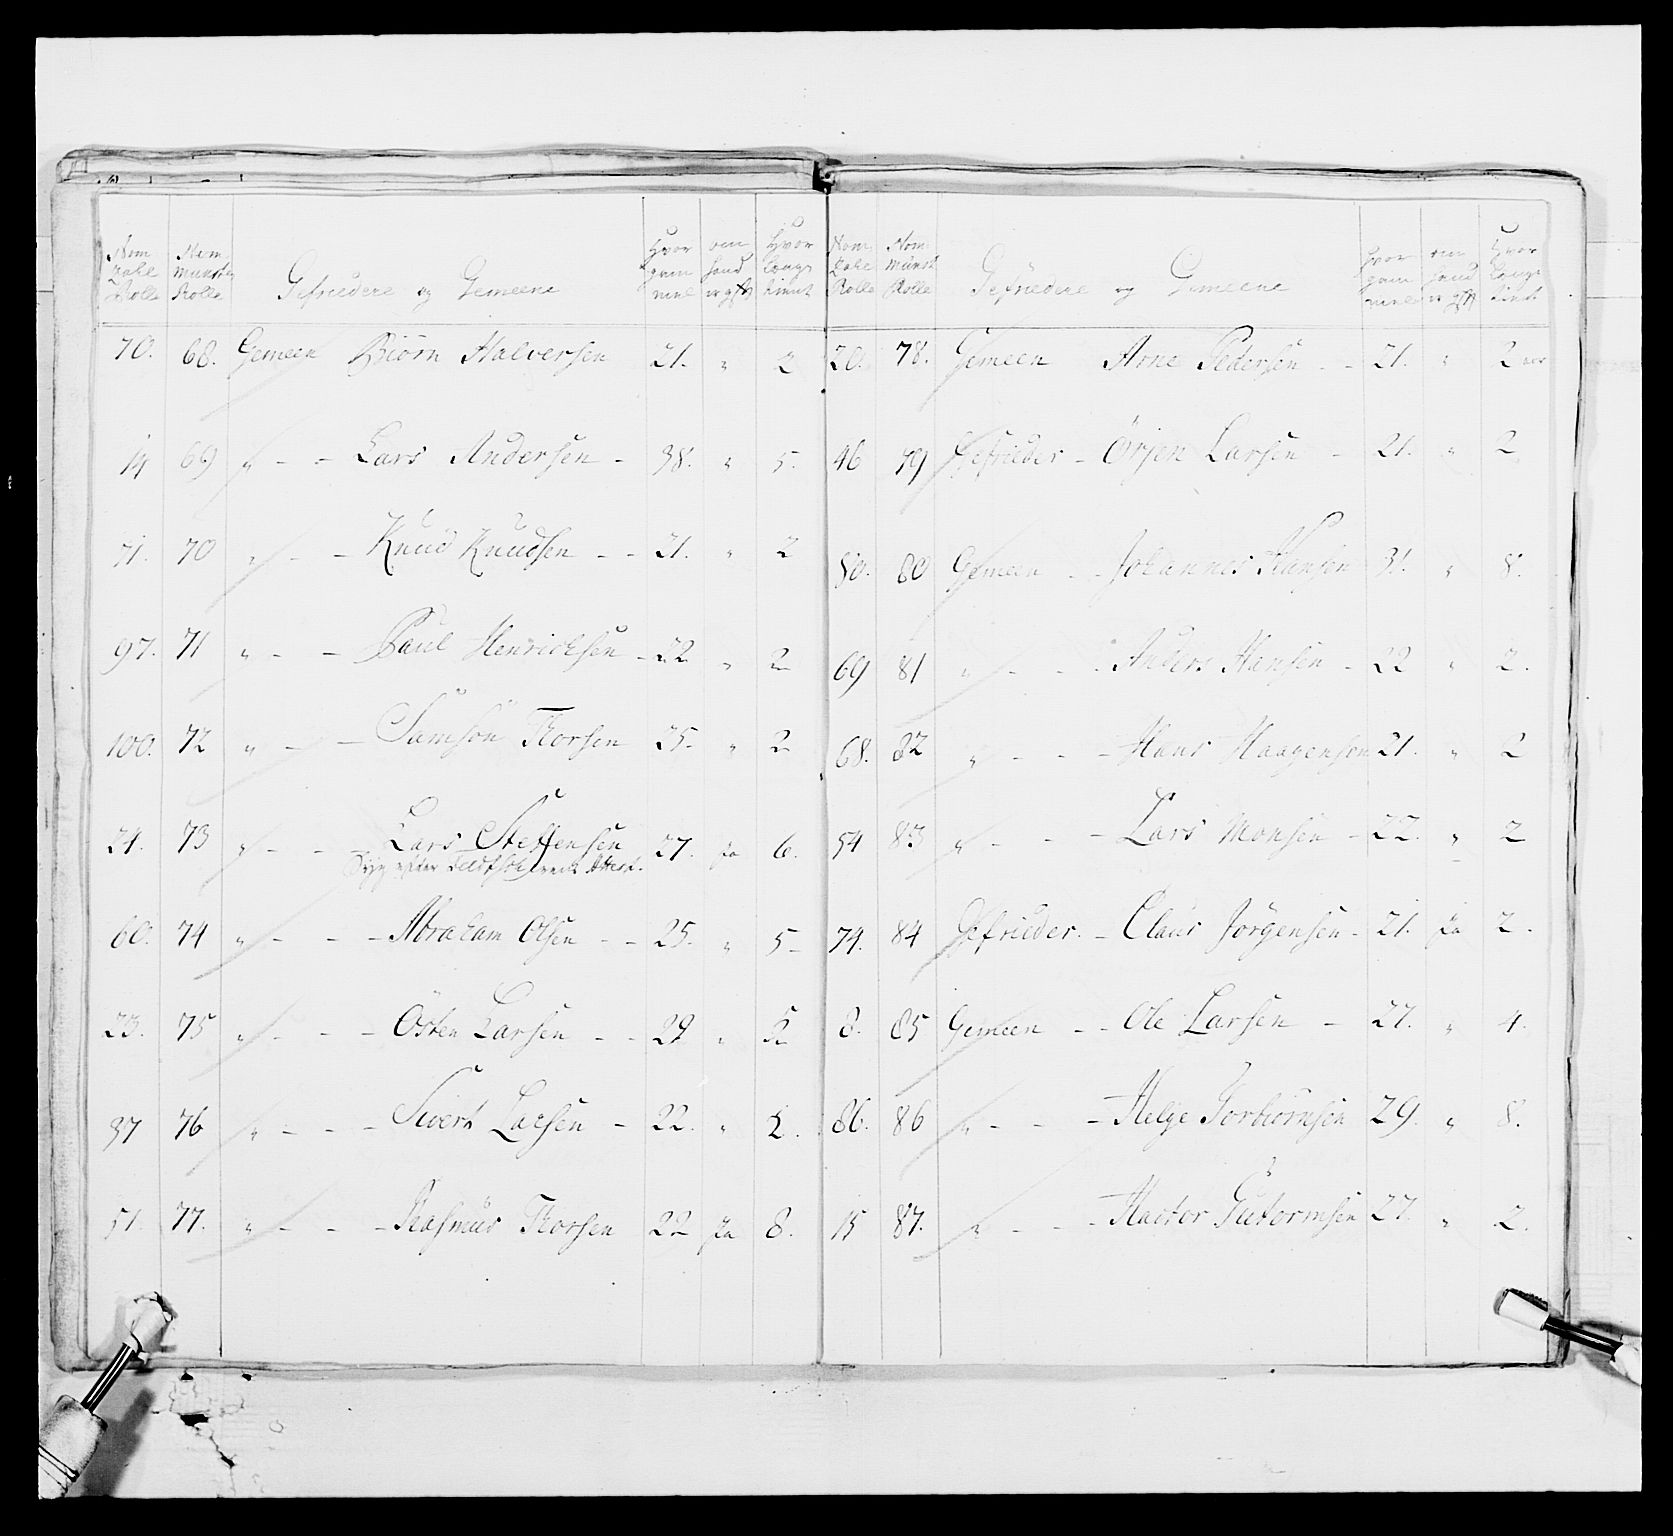 Nom Rolle Nom Munster Rolle Gefriedere og Gemeene Hvor gam mel om hand er gift Hvor længe tient
70. 68. Gemeen Biörn Halversen 21. " 2
14 69 " - - Lars Andersen - 38. " 5.
71. 70 " - - Knud Knudsen - - 21. " 2
97. 71 " - - Paul Henrichsen - 22 " 2
100. 72 " - - Samson Thorsen 25. " 2
24. 73 " - - Lars Steffensen 27. Ja 6.
Syg efter
60. 74 " - - - Abraham Olsen - - 25. " 5
23. 75 " - - - Östen Larsen - - 29 "
37 76 " - - - Sivert Larsen - 22. " 2.
51. 77. " - - - Rasmus Thorsen 22 Ja 8.
Nom Rolle Nom Munst Rolle Gefriedere og Gemeene Hvor gam mel om hand er gift Hvor længe tient
20. 78. Gemeen Arne Pedersen - - 21. " 2
46 79 Gefrieder - Örjen Larsen - 21. " 2
50. 80 Gemeen - - Johannes Hansen 31. " 8.
69 81 " - - - Anders Hansen - 22 " 2.
68. 82 " - - - Hans Haagensen 21. " 2
54 83 " - - - Lars Monsen - 22. " 2
74. 84 Gefrieder. - Claus Jörgensen - 21. Ja 2.
8. 85 Gemeen - - Ole Larsen - 27. " 4.
86. 86 " - - - Helge Torbiörnsen 29. " 8.
15 87. " - - - Hactor Gutormsen 27. " 2.